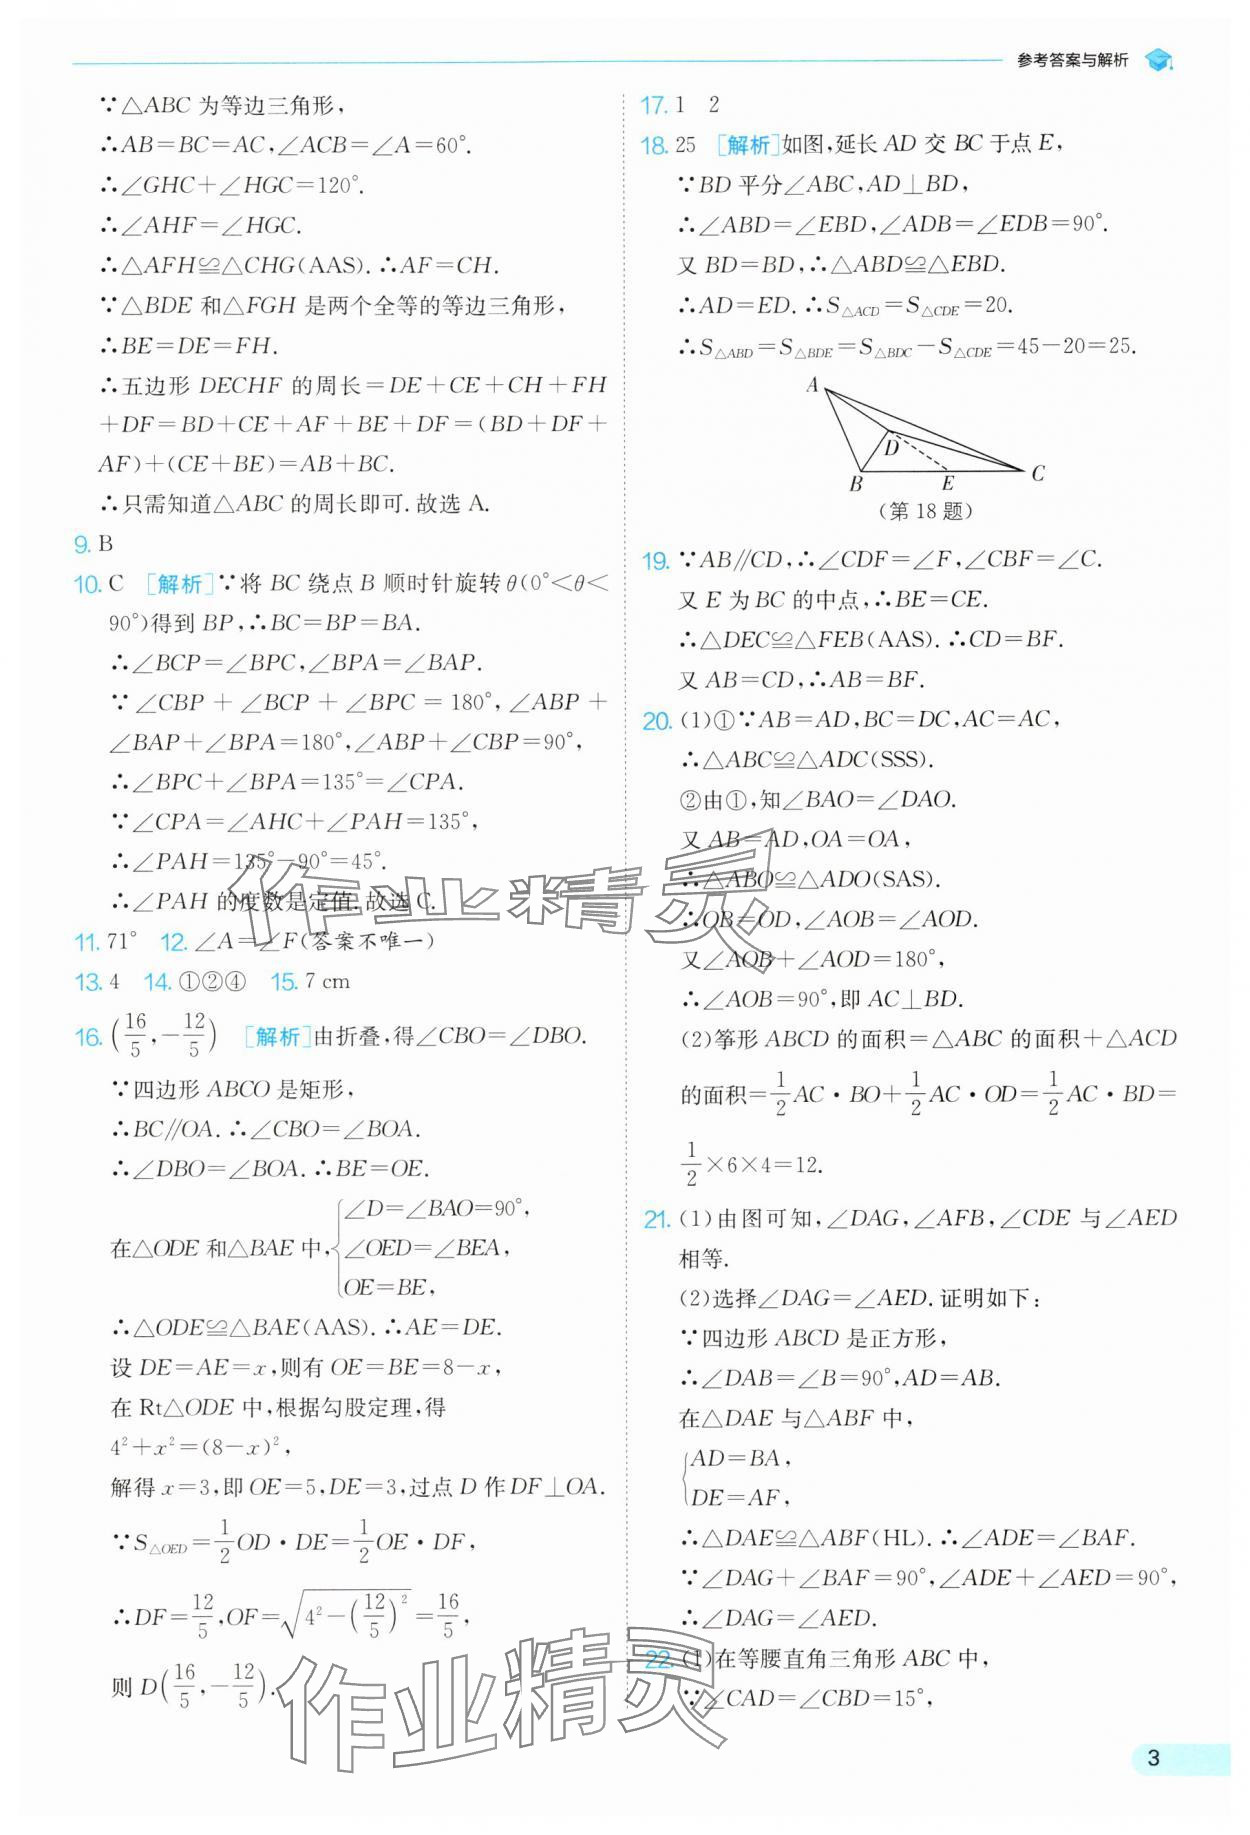 参考答案与解析
∵△ABC 为等边三角形，
∴AB=BC=AC,∠ACB=∠A=60°.
∴∠GHC+∠HGC=120°.
∴∠AHF=∠HGC.
∴△AFH≌△CHG(AAS).∴AF=CH.
∵△BDE 和△FGH 是两个全等的等边三角形，
∴BE=DE=FH.
∴五边形 DECHF 的周长=DE+CE+CH+FH
+DF=BD+CE+AF+BE+DF=(BD+DF+
AF)+(CE+BE)=AB+BC.
∴只需知道△ABC 的周长即可.故选 A.
9. B
10. C [解析]∵将 BC 绕点 B 顺时针旋转 θ(0°<θ<
90°)得到 BP,∴BC=BP=BA.
∴∠BCP=∠BPC,∠BPA=∠BAP.
∵∠CBP+∠BCP+∠BPC=180°,∠ABP+
∠BAP+∠BPA=180°,∠ABP+∠CBP=90°,
∴∠BPC+∠BPA=135°=∠CPA.
∵∠CPA=∠AHC+∠PAH=135°,
∴∠PAH=135°-90°=45°.
∴∠PAH 的度数是定值.故选 C.
11. 71° 12. ∠A=∠F(答案不唯一)
13. 4 14. ①②④ 15. 7 cm
16. (16/5,-12/5) [解析]由折叠,得∠CBO=∠DBO.
∵四边形 ABCO 是矩形，
∴BC∥OA.∴∠CBO=∠BOA.
∴∠DBO=∠BOA.∴BE=OE.
在△ODE 和△BAE 中,{∠D=∠BAO=90°,
∠OED=∠BEA,
OE=BE,
∴△ODE≌△BAE(AAS).∴AE=DE.
设 DE=AE=x,则有 OE=BE=8-x,
在 Rt△ODE 中,根据勾股定理,得
4²+x²=(8-x)²,
解得 x=3,即 OE=5,DE=3,过点 D 作 DF⊥OA.
∵S△OED=1/2 OD·DE=1/2 OE·DF,
∴DF=12/5,OF=√(4²-(12/5)²)=16/5,
则 D(16/5,-12/5).
17. 1 2
18. 25 [解析]如图,延长 AD 交 BC 于点 E,
∵BD 平分∠ABC,AD⊥BD,
∴∠ABD=∠EBD,∠ADB=∠EDB=90°.
又 BD=BD,∴△ABD≌△EBD.
∴AD=ED.∴S△ACD=S△CDE=20.
∴S△ABD=S△BDE=S△BDC-S△CDE=45-20=25.
A
D
B E C
(第 18 题)
19. ∵AB∥CD,∴∠CDF=∠F,∠CBF=∠C.
又 E 为 BC 的中点,∴BE=CE.
∴△DEC≌△FEB(AAS).∴CD=BF.
又 AB=CD,∴AB=BF.
20. (1)①∵AB=AD,BC=DC,AC=AC,
∴△ABC≌△ADC(SSS).
②由①,知∠BAO=∠DAO.
又 AB=AD,OA=OA,
∴△ABO≌△ADO(SAS).
∴OB=OD,∠AOB=∠AOD.
又∠AOB+∠AOD=180°,
∴∠AOB=90°,即 AC⊥BD.
(2)筝形 ABCD 的面积=△ABC 的面积+△ACD
的面积=1/2 AC·BO+1/2 AC·OD=1/2 AC·BD=
1/2×6×4=12.
21. (1)由图可知,∠DAG,∠AFB,∠CDE 与∠AED
相等.
(2)选择∠DAG=∠AED.证明如下:
∵四边形 ABCD 是正方形,
∴∠DAB=∠B=90°,AD=AB.
在△DAE 与△ABF 中,
{AD=BA,
DE=AF,
∴△DAE≌△ABF(HL).∴∠ADE=∠BAF.
∵∠DAG+∠BAF=90°,∠ADE+∠AED=90°,
∴∠DAG=∠AED.
22. (1)在等腰直角三角形 ABC 中,
∵∠CAD=∠CBD=15°,
3
作业精灵
作业精灵